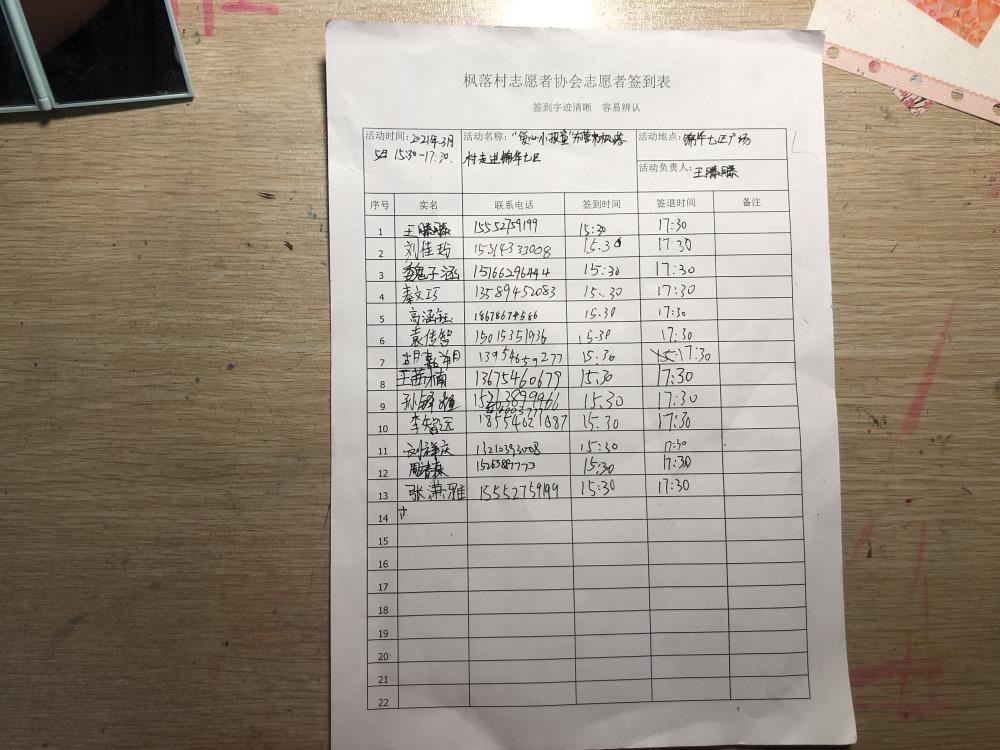 枫落村志愿者协会志愿者签到表
签到字迹清晰 容易辨认
活动时间：2021年3月5日 15:30-17:30.
活动名称：
村走进锦华七区
活动地点：锦华七区广场
活动负责人：王滕滕
序号 实名 联系电话 签到时间 签退时间 备注
1 王滕滕 15552759199 15:30 17:30
2 刘佳 15314333008 15:30 17:30
3 魏子涵 15166296444 15:30 17:30
4 秦文巧 13589452083 15:30 17:30
5 高涵钰 15:30 17:30
6 袁传智 15015351936 15:30 17:30
7 13954659277 15:30 17:30
8 王茜楠 13675460679 15:30 17:30
9 15213899966 15:30 17:30
10 李智远 18554621087 15:30 17:30
11 刘祥庆 15210393008 15:30 17:30
12 15263887773 15:30 17:30
13 张潇雅 15552759199 15:30 17:30
14
15
16
17
18
19
20
21
22